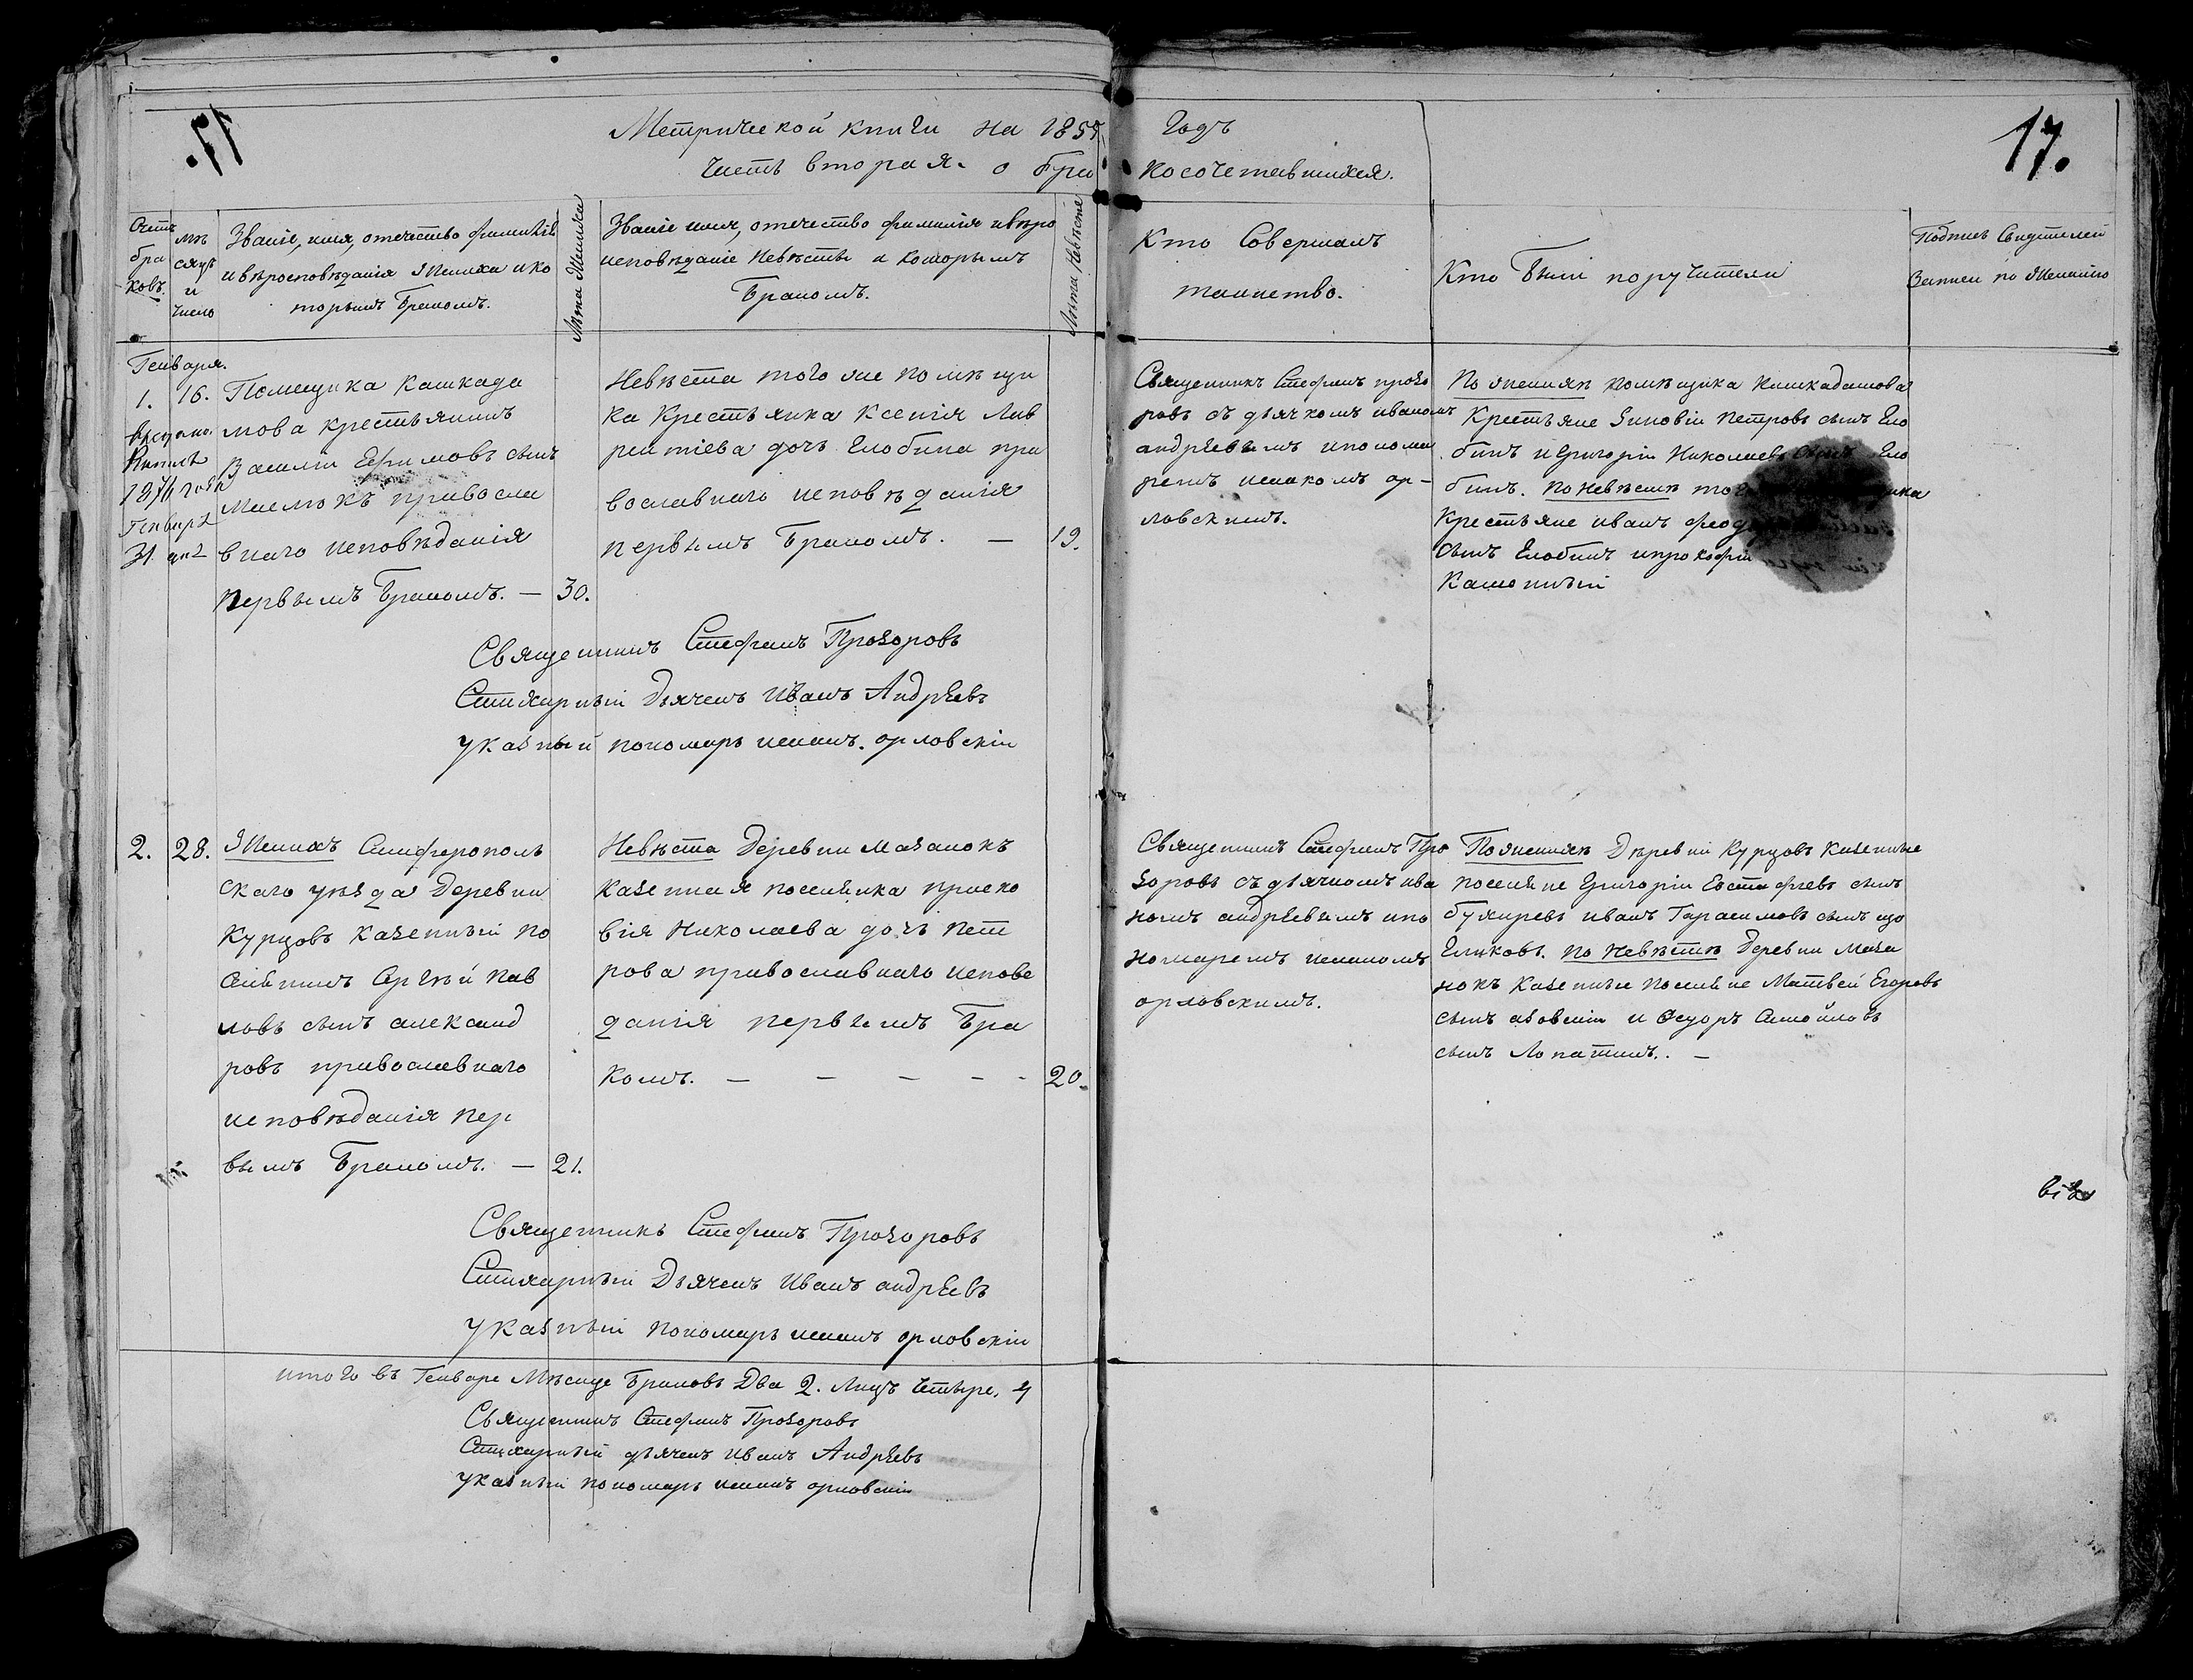 17.
Метрической книги на 185
Часть вторая. о бра
Годъ
косочетавшихся.
17.
Счетъ
бра
ковъ.
мѣ
сяцъ
и
число
Званіе, имя, отечество фамилія
и вѣроисповѣданія Жениха и ко
торымъ Бракомъ.
Лѣта Жениха
Званіе имя, отечество фамилія и вѣро
исповѣданіе Невѣсты и которымъ
Бракомъ.
Лѣта Невѣсты
Кто Совершалъ
таинство.
Кто Были поручители
Подпись Свидетелей
Записи по Желанію
Генваря.
1.
16.
187 года
Генваря
31 дня
Помещика Кашкада
мова крестьянинъ
Василій Ефимовъ сынъ
Маслюкъ правосла
внаго исповѣданія
первымъ Бракомъ. — 30.
Невѣста того же помѣщи
ка Крестьянка Ксенія Лав
рентіева дочь Глобина пра
вославнаго исповѣданія
первымъ Бракомъ. — 19.
Священникъ Стефанъ прозо
ровъ съ дьячкомъ иваномъ
андрѣевымъ и понома
ремъ исакомъ ор-
ловскимъ.
По женихѣ помѣщика Кашкадамова
Крестьяне Зиновій Петровъ сынъ Гло
бинъ и Григорій Николаевъ сынъ Гло
бинъ. По Невѣстѣ
Крестьяне иванъ
сынъ Глобинъ и прокофій
Священникъ Стефанъ Прозоровъ
Стихарный Дьячекъ Иванъ Андрѣевъ
указный пономарь исакъ. орловскій
2.
28.
Женихъ Симферополь
скаго уѣзда Деревни
Курцовъ Казенный по
селянинъ Сергѣй Пав
ловъ сынъ александ
ровъ православнаго
исповѣданія пер
вымъ Бракомъ. — 21.
Невѣста Деревни Мазанокъ
Казенная поселянка праско
вія Николаева дочь Пет
рова православнаго испове
данія первымъ Бра
комъ. — — — — - 20.
Священникъ Стефанъ Про
зоровъ съ дьячкомъ ива
номъ андрѣевымъ и по
номаремъ исакомъ
орловскимъ.
По женихѣ Деревни Курцовъ Казенные
поселяне Григорій Евстафіевъ сынъ
иванъ Гарасимовъ сынъ що
Голиковъ. По Невѣстѣ Деревни Маза
нокъ Казенные поселяне Матвей Егоровъ
сынъ азовскій и Ѳедоръ Самойловъ
сынъ Лопатинъ. —
Священникъ Стефанъ Прозоровъ
Стихарный Дьячекъ Иванъ андрѣевъ
Указный Пономарь исакъ орловскій
итого въ Генваре Мѣсяце Браковъ Два 2. Лицъ Четыре. 4
Священникъ Стефанъ Прозоровъ
Стихарный дьячекъ Иванъ Андрѣевъ
указный пономарь исакъ орловскій